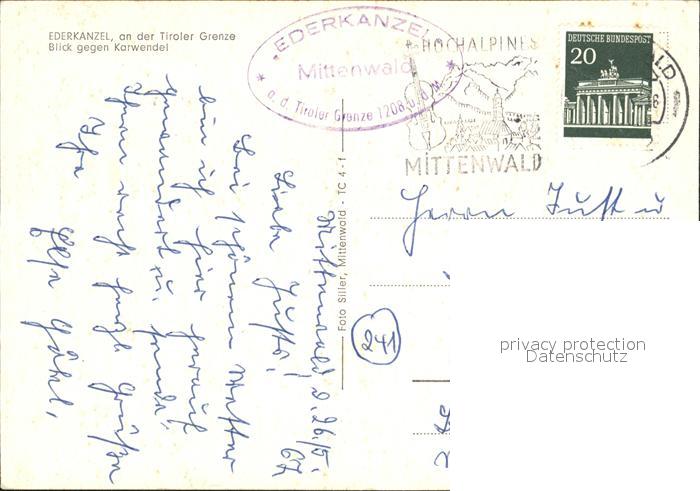 EDERKANZEL, an der Tiroler Grenze
Blick gegen Karwendel
EDERKANZEL
Mittenwald
a. d. Tiroler Grenze 1208 ü.d.M.
HOCHALPINES
MITTENWALD
DEUTSCHE BUNDESPOST
20
Foto Siller, Mittenwald - TC 4-1
Mittenwald, d. 26./5.
67
Liebe
Bei schönem Wetter
bin ich hier herauf
gewandert u.
Ihnen recht herzl. Grüße
Ihre
Herrn Just u
241
privacy protection
Datenschutz